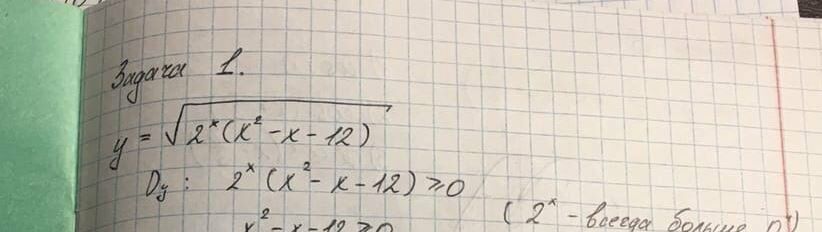 Задача 1.
y = √2ˣ(x² - x - 12)
Dy : 2ˣ(x² - x - 12) ≥ 0
x² - x - 12 ≥ 0 (2ˣ - всегда больше 0)